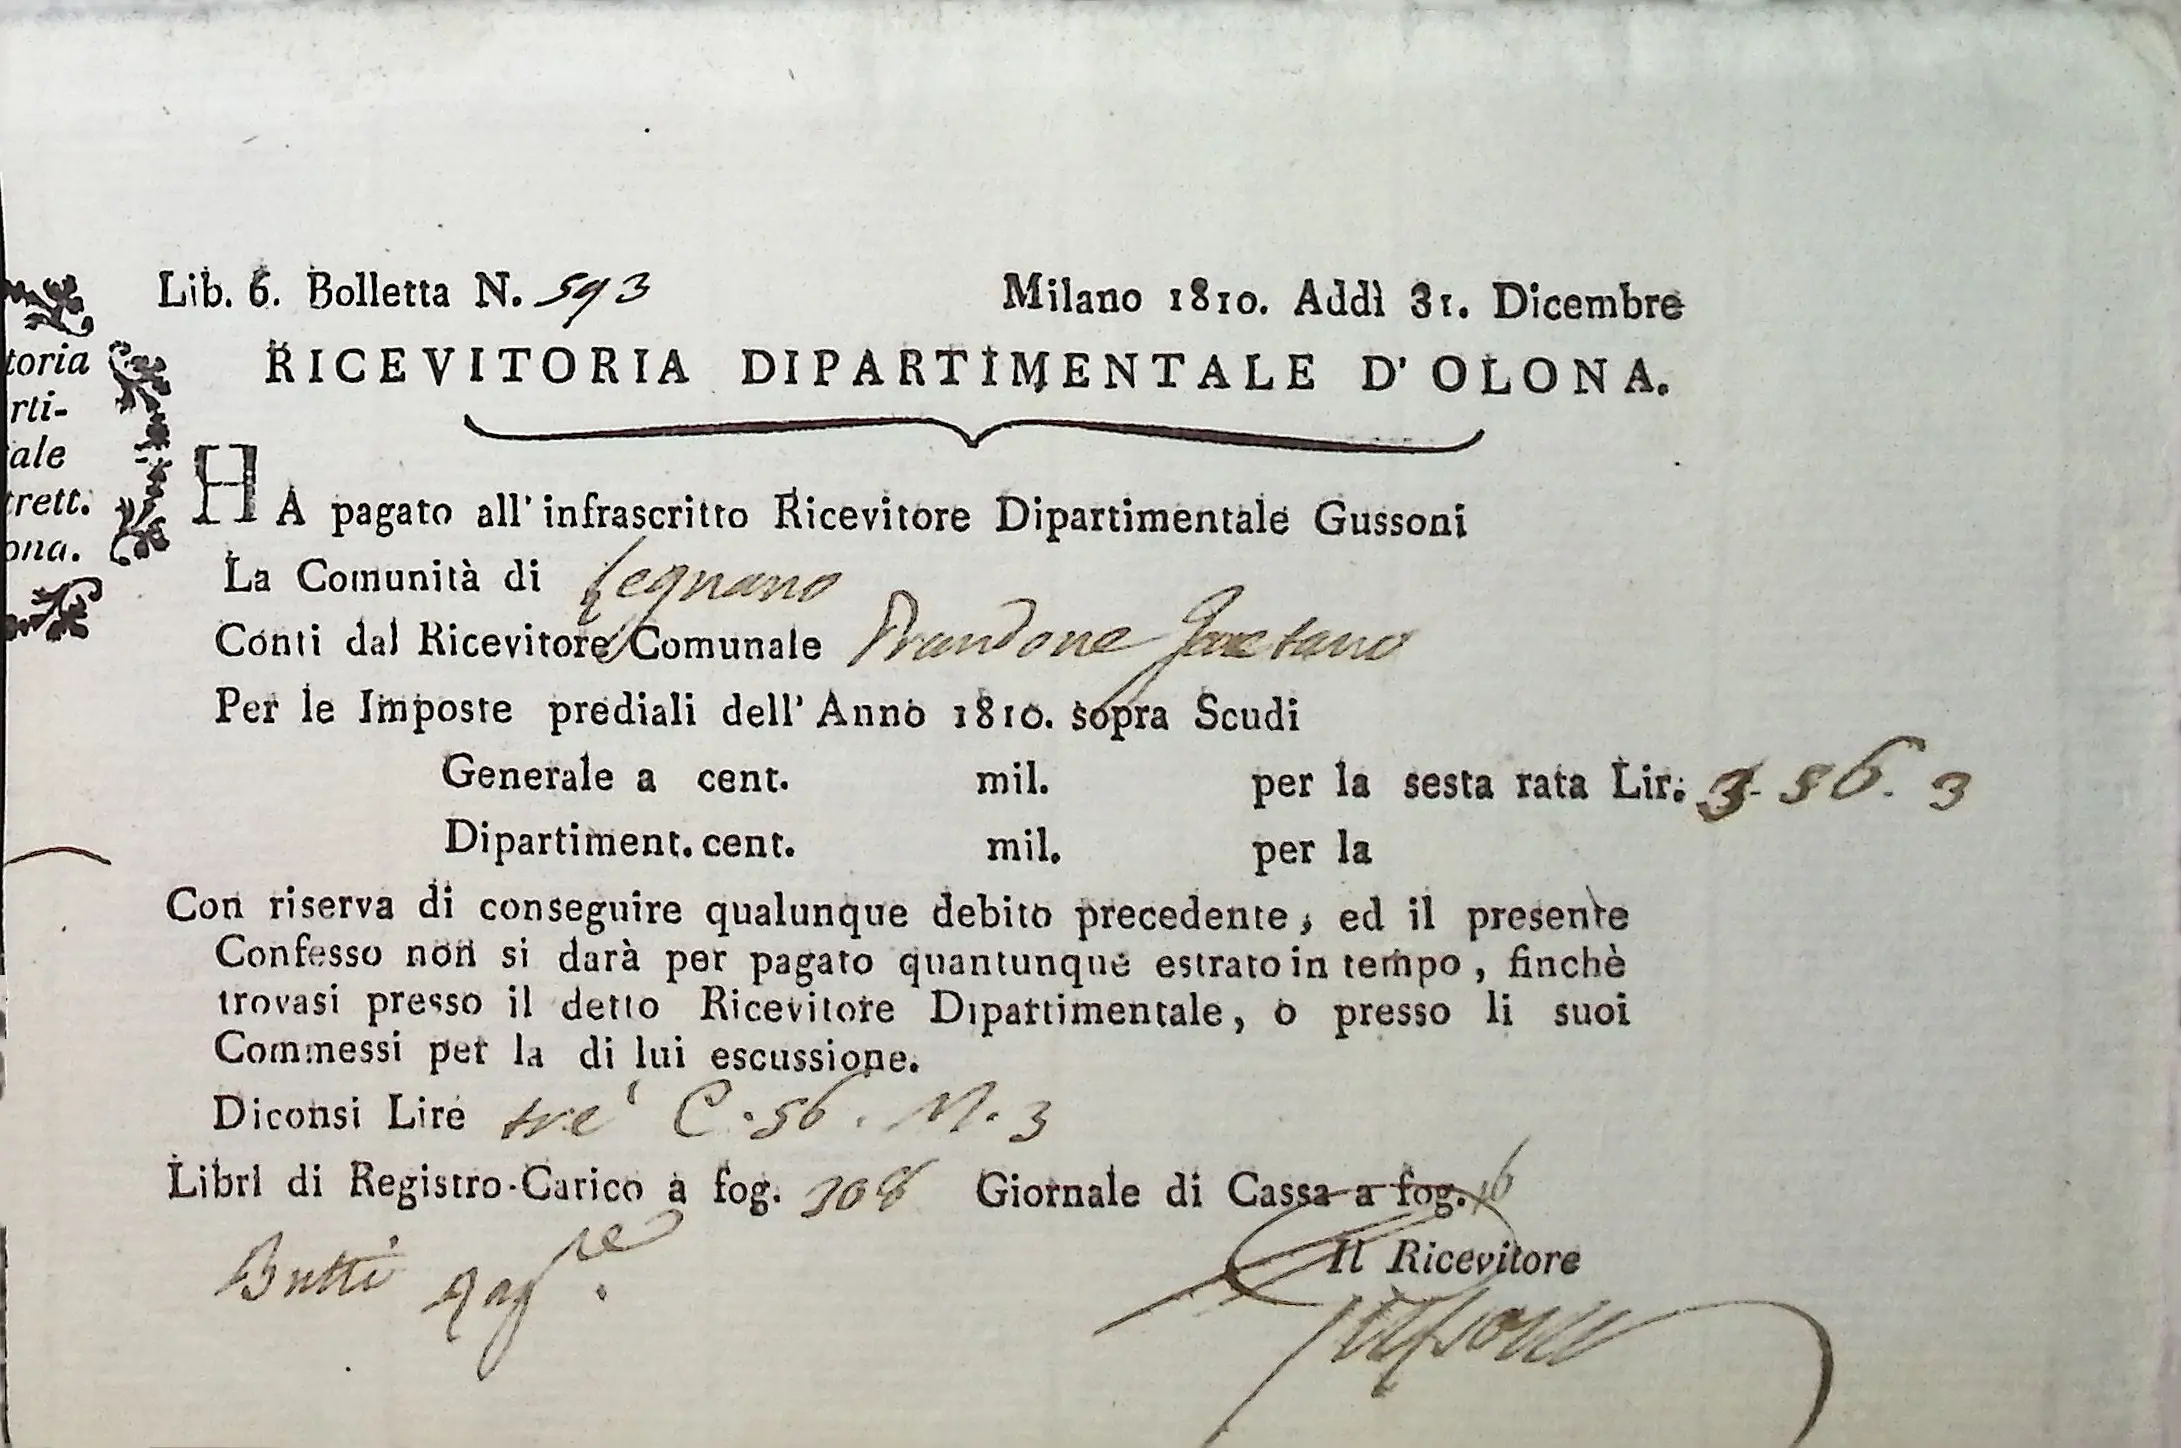 Lib. 6. Bolletta N. 593
Milano 1810. Addì 31. Dicembre
RICEVITORIA DIPARTIMENTALE D'OLONA.
toria
rti-
ale
trett.
ona.
HA pagato all'infrascritto Ricevitore Dipartimentale Gussoni
La Comunità di Legnano
Conti dal Ricevitore Comunale Prandone Gaetano
Per le Imposte prediali dell'Anno 1810. sopra Scudi
Generale a cent. mil. per la sesta rata Lir: 3. 56. 3
Dipartiment. cent. mil. per la
Con riserva di conseguire qualunque debito precedente, ed il presente
Confesso non si darà per pagato quantunque estrato in tempo, finchè
trovasi presso il detto Ricevitore Dipartimentale, o presso li suoi
Commessi per la di lui escussione.
Diconsi Lire tre C. 56. M. 3
Libri di Registro-Carico a fog. 308 Giornale di Cassa a fog. 16
Il Ricevitore
Butti Rag.re
Gussoni